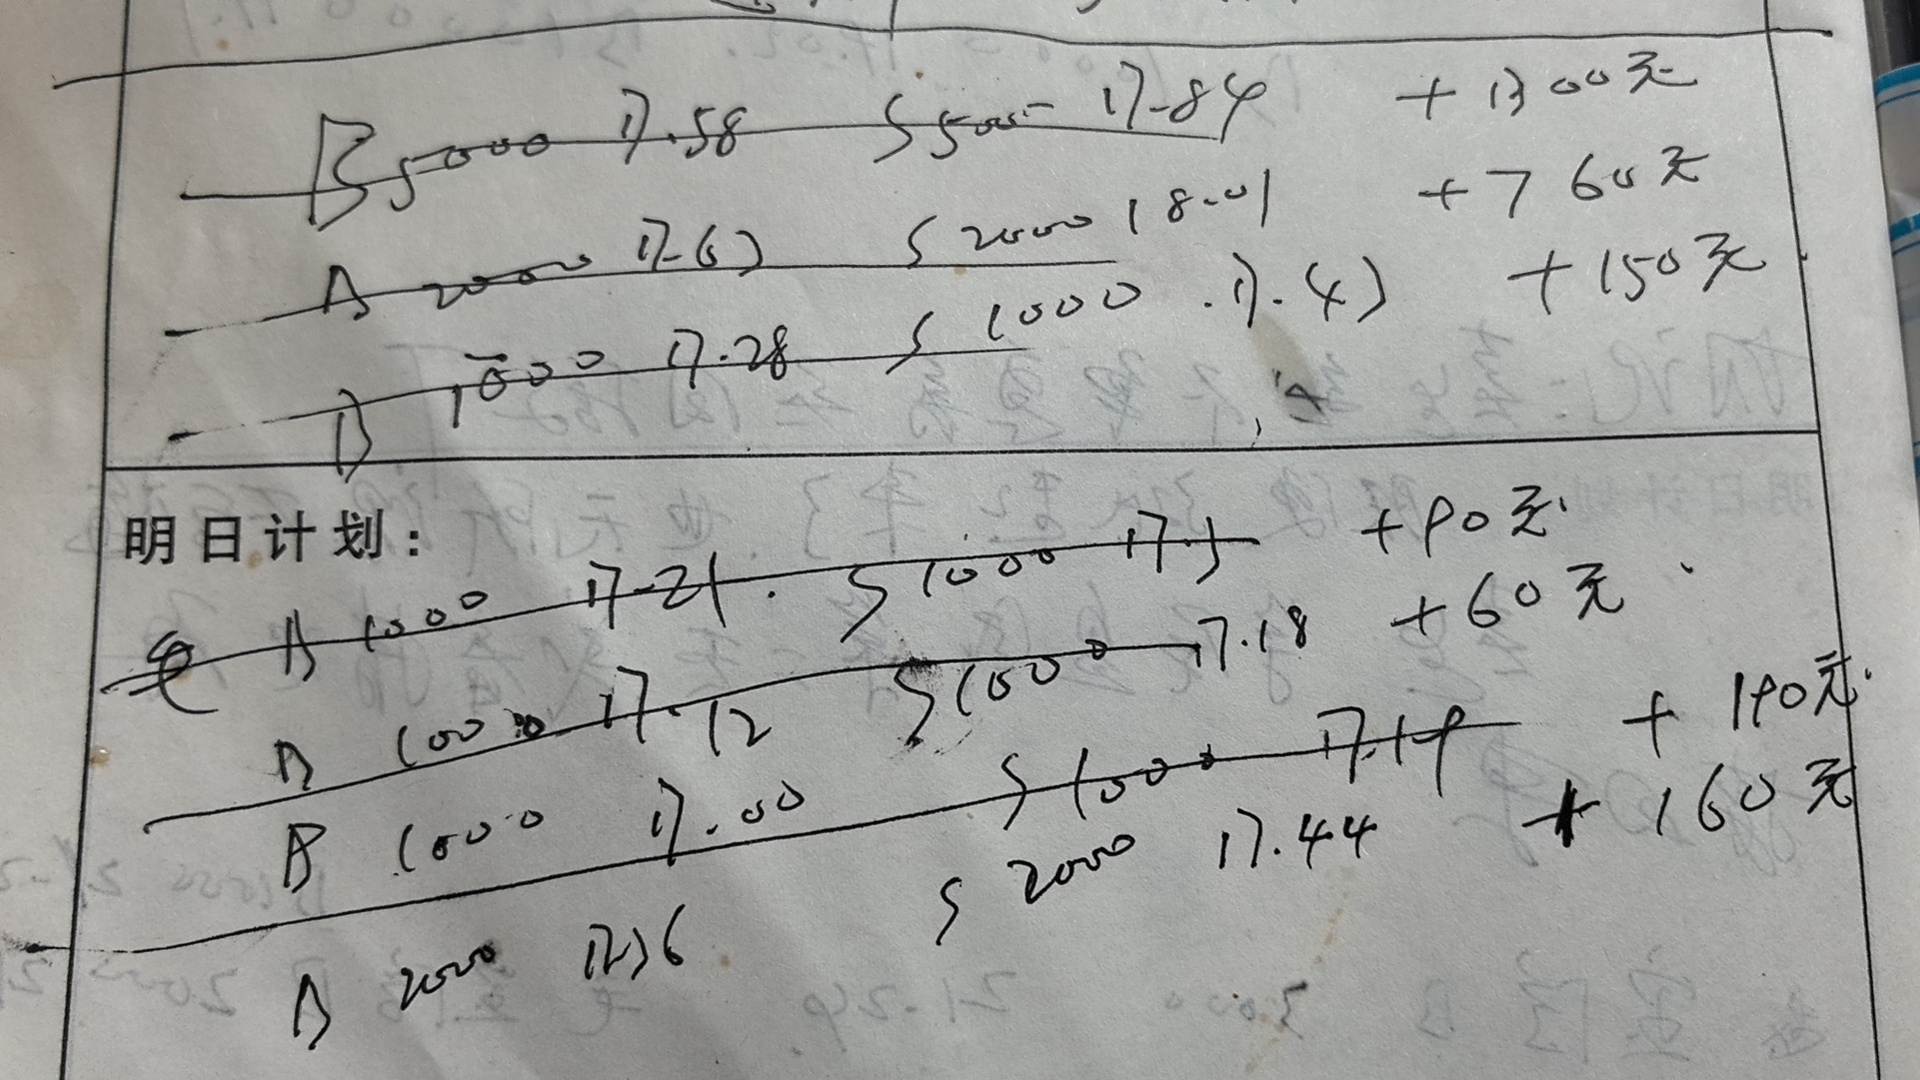 B 5000 17.58 S 5000 17.84 +1300元
B 2000 17.63 S 2000 18.01 +760元
B 1000 17.28 S 1000 17.43 +150元
明日计划:
B 1000 17.21 S 1000 17.3 +90元
B 1000 17.12 S 1000 17.18 +60元
B 1000 17.00 S 1000 17.19 +190元
B 2000 17.36 S 2000 17.44 +160元